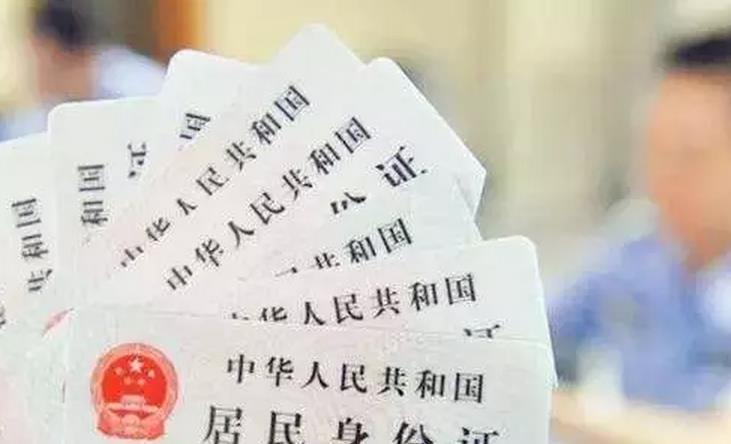 和国
和国
国
中华人民共和国
中华人民共和国
份证
民共和国
中华人民共和国
证
中华人民共和国
居民身份证